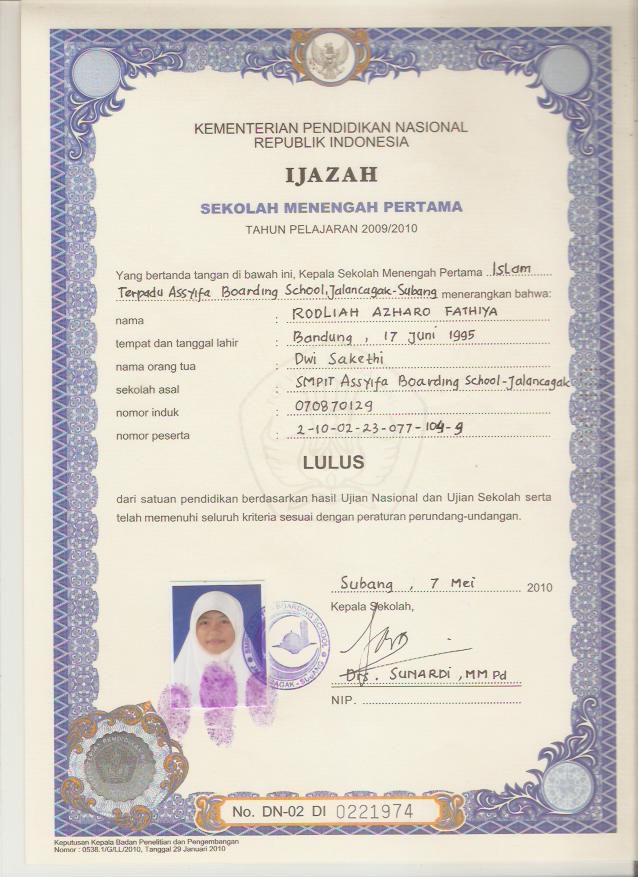 KEMENTERIAN PENDIDIKAN NASIONAL
REPUBLIK INDONESIA
IJAZAH
SEKOLAH MENENGAH PERTAMA
TAHUN PELAJARAN 2009/2010
Yang bertanda tangan di bawah ini, Kepala Sekolah Menengah Pertama Islam
Terpadu Assyifa Boarding School, Jalancagak-Subang menerangkan bahwa:
nama : RODLIAH AZHARO FATHIYA
tempat dan tanggal lahir : Bandung, 17 Juni 1995
nama orang tua : Dwi Sakethi
sekolah asal : SMPIT Assyifa Boarding School-Jalancagak
nomor induk : 070870129
nomor peserta : 2-10-02-23-077-104-9
LULUS
dari satuan pendidikan berdasarkan hasil Ujian Nasional dan Ujian Sekolah serta
telah memenuhi seluruh kriteria sesuai dengan peraturan perundang-undangan.
Subang, 7 Mei 2010
Kepala Sekolah,
BOARDING SCHOOL
Drs. SUNARDI, MM Pd
NIP.
No. DN-02 DI 0221974
Keputusan Kepala Badan Penelitian dan Pengembangan
Nomor : 0538.1/G/LL/2010, Tanggal 29 Januari 2010